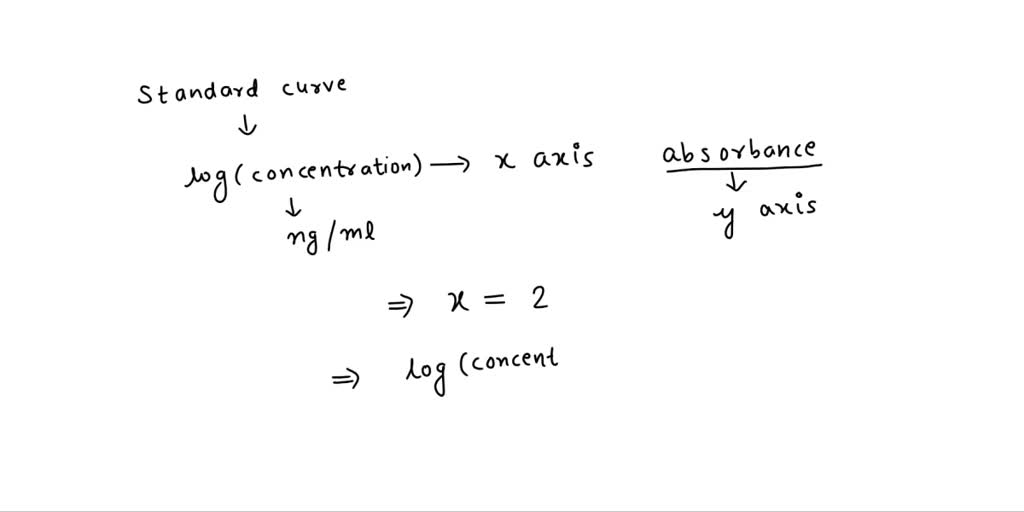 Standard curve
↓
log(concentration) → x axis absorbance
↓ ↓
ng/ml y axis
⇒ x = 2
⇒ log (concent